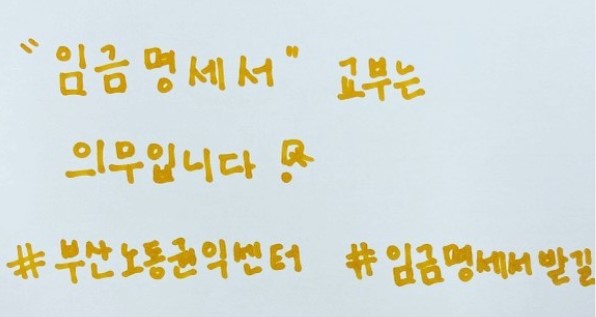 "임금명세서" 교부는
의무입니다!
#부산노동권익센터 #임금명세서받길